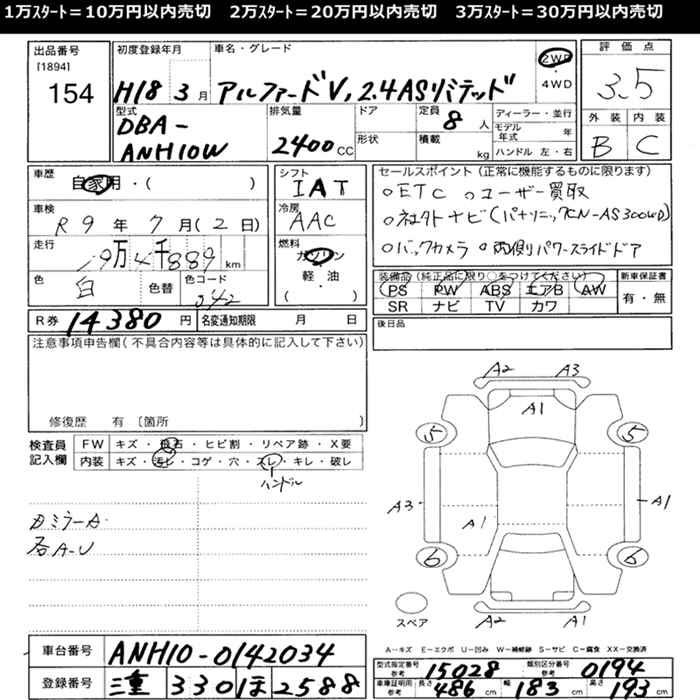 1万ｽﾀｰﾄ＝10万円以内売切　2万ｽﾀｰﾄ＝20万円以内売切　3万ｽﾀｰﾄ＝30万円以内売切
出品番号 [1894] 154
初度登録年月 H18 3月
車名・グレード アルファードV, 2.4ASリミテッド
2WD・4WD
評価点 3.5
外装 B 内装 C
型式 DBA-ANH10W
排気量 2400CC
ドア 形状
定員 8人
積載 kg
ディーラー・並行
モデル年式 年
ハンドル 左・右
車歴 自家用・( )
シフト IAT
車検 R9年7月(2日)
冷房 AAC
走行 19万4千889km
燃料 ガソリン 軽・油 ( )
色 白 色替 色コード 042
セールスポイント（正常に機能するものに限ります）
○ETC ○ユーザー買取
○社外ナビ(パナソニックCN-AS300WD)
○バックカメラ ○両側パワースライドドア
装備品（純正品に限り○をつけてください） 新車保証書
PS PW ABS エアB AW 有・無
SR ナビ TV カワ
R券 14380円 名変通知期限 月 日
後日品
注意事項申告欄(不具合内容等は具体的に記入して下さい)
修復歴 有 〔箇所 〕
検査員記入欄
FW キズ・飛石・ヒビ割・リペア跡・X要
内装 キズ・汚レ・コゲ・穴・スレ・キレ・破レ
ハンドル
カミラーA
各A-U
A2 A3
A1
5 5
A3 A1 A1
6 6
A2 A1
スペア
A－キズ E－エクボ U－凹み W－補修跡 S－サビ C－腐食 XX－交換済
車台番号 ANH10-0142034
登録番号 三重 330 ほ 2588
型式指定番号 参考 15028 類別区分番号 参考 0194
車庫証明用 参考 長さ 486cm 幅 183cm 高さ 193cm